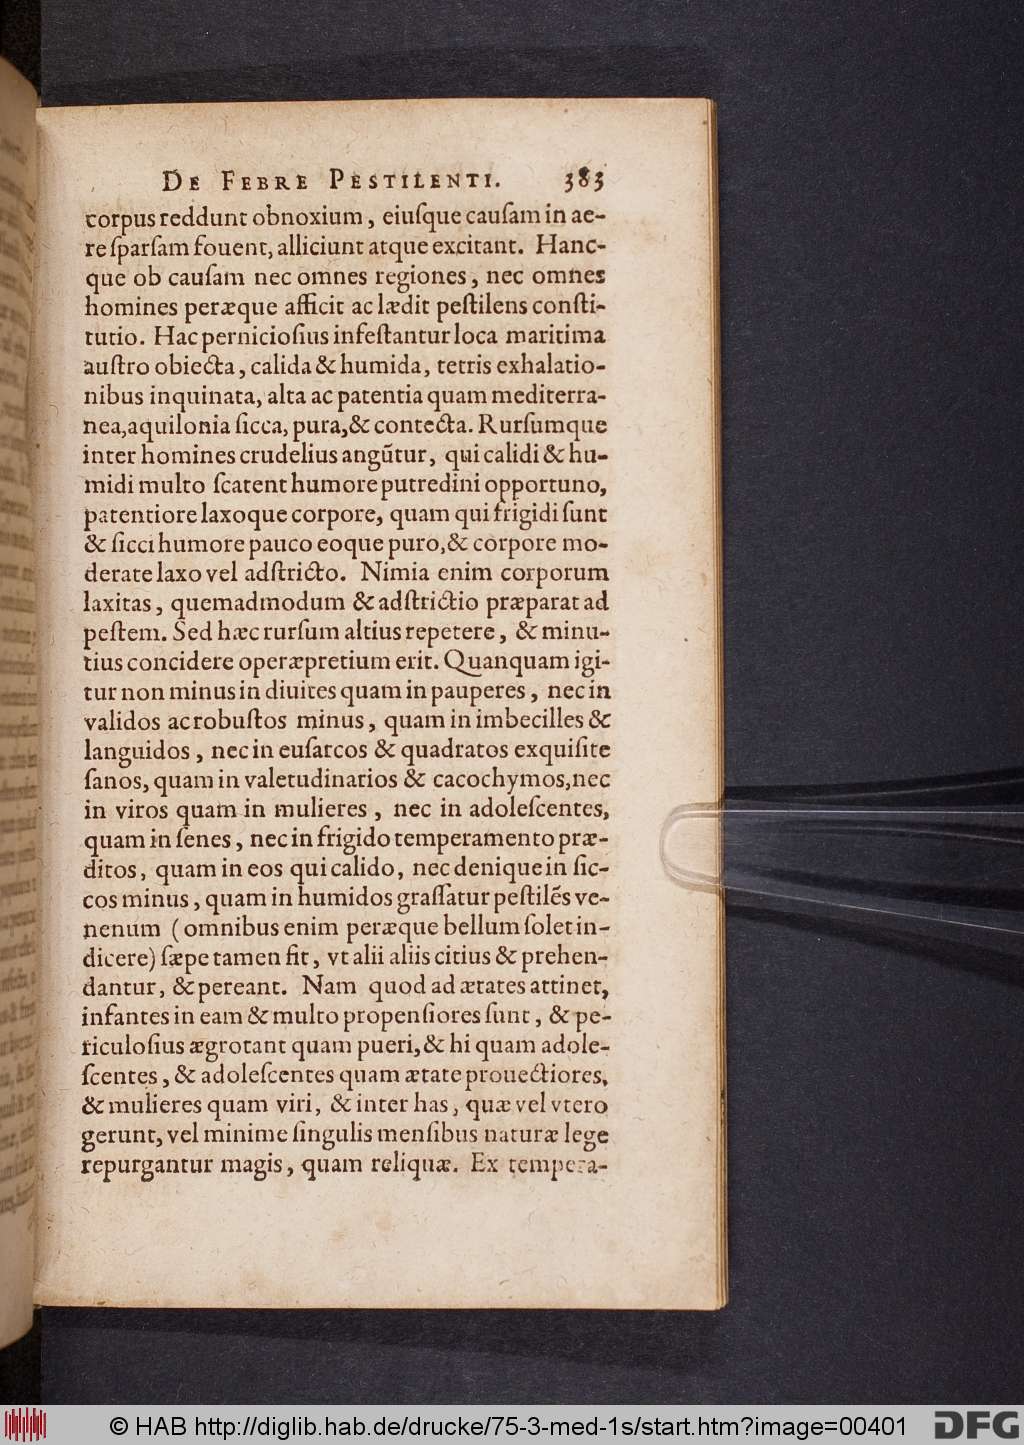 DE FEBRE PESTILENTI. 383
corpus reddunt obnoxium, eiuſque cauſam in ae-
re ſparſam fouent, alliciunt atque excitant. Hanc-
que ob cauſam nec omnes regiones, nec omnes
homines peræque afficit ac lædit peſtilens conſti-
tutio. Hac pernicioſius infeſtantur loca maritima
auſtro obiecta, calida & humida, tetris exhalatio-
nibus inquinata, alta ac patentia quam mediterra-
nea, aquilonia ſicca, pura, & contecta. Rurſumque
inter homines crudelius angūtur, qui calidi & hu-
midi multo ſcatent humore putredini opportuno,
patentiore laxoque corpore, quam qui frigidi ſunt
& ſicci humore pauco eoque puro, & corpore mo-
derate laxo vel adſtricto. Nimia enim corporum
laxitas, quemadmodum & adſtrictio præparat ad
peſtem. Sed hæc rurſum altius repetere, & minu-
tius concidere operæpretium erit. Quanquam igi-
tur non minus in diuites quam in pauperes, nec in
validos ac robuſtos minus, quam in imbecilles &
languidos, nec in euſarcos & quadratos exquiſite
ſanos, quam in valetudinarios & cacochymos, nec
in viros quam in mulieres, nec in adoleſcentes,
quam in ſenes, nec in frigido temperamento præ-
ditos, quam in eos qui calido, nec denique in ſic-
cos minus, quam in humidos graſſatur peſtilēs ve-
nenum (omnibus enim peræque bellum ſolet in-
dicere) ſæpe tamen fit, vt alii aliis citius & prehen-
dantur, & pereant. Nam quod ad ætates attinet,
infantes in eam & multo propenſiores ſunt, & pe-
riculoſius ægrotant quam pueri, & hi quam adole-
ſcentes, & adoleſcentes quam ætate prouectiores,
& mulieres quam viri, & inter has, quæ vel vtero
gerunt, vel minime ſingulis menſibus naturæ lege
repurgantur magis, quam reliquæ. Ex tempera-
© HAB http://diglib.hab.de/drucke/75-3-med-1s/start.htm?image=00401
DFG